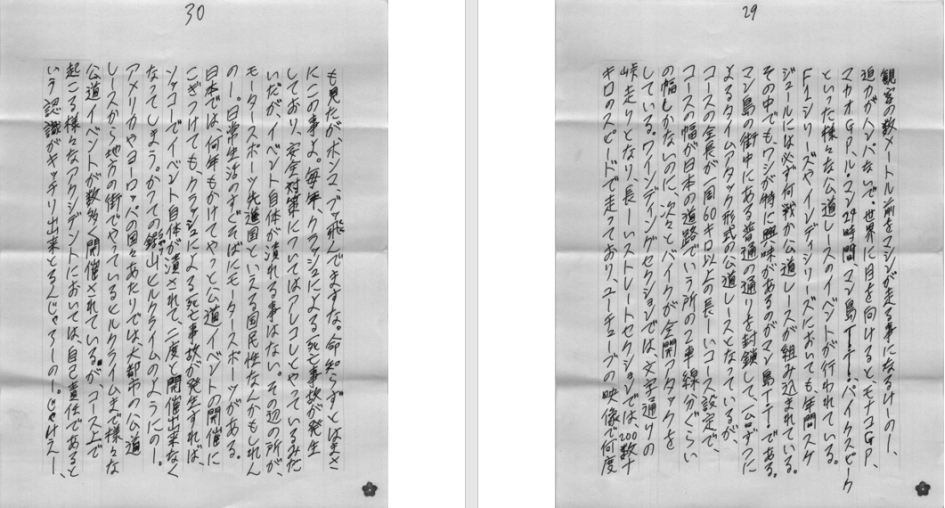 29
観客の数メートル前をマシンが走る事になるけーのー、
迫力がハンパないで。世界に目を向けると、モナコGP、
マカオGP、ル・マン24時間、マン島TT、パイクスピーク
といった様々な公道レースのイベントが行われている。
F1シリーズやインディシリーズにおいても、年間スケ
ジュールには必ず何戦か公道レースが組み込まれている。
その中でも、ワシが特に興味があるのがマン島TTである。
マン島の街中にある普通の通りを封鎖して、一台ずつに
よるタイムアタック形式の公道レースとなっているが、
コースの全長が一周60キロ以上の長ーいコース設定で、
コースの幅が日本の道路でいう所の2車線分ぐらい
の幅しかないのに、次々とバイクが全開アタックを
している。ワインディングセクションでは、文字通りの
峠走りとなり、長ーいストレートセクションでは、200数十
キロのスピードで走っており、ユーチューブの映像で何度
30
も見たが、ホンマ、ブッ飛んでますな。命知らずとはまさ
にこの事よ。毎年、クラッシュによる死亡事故が発生
しており、安全対策についてはアレコレとやっているみた
いだが、イベント自体が潰れる事はない。その辺の所が、
モータースポーツ先進国といえる国民性なんかもしれん
のー。日常生活のすぐそばにモータースポーツがある。
日本では、何年もかけてやっと公道イベントの開催に
こぎつけても、クラッシュによる死亡事故が発生すれば、
ソッコーでイベント自体が潰されて、二度と開催出来なく
なってしまよう。かつての銀山ヒルクライムのようにのー。
アメリカやヨーロッパの国々あたりでは、大都市の公道
レースから、地方の街でやっているヒルクライムまで様々な
公道イベントが数多く開催されている。が、コース上で
起こる様々なアクシデントにおいては、自己責任であると
いう認識がキッチリ出来とるんじゃろーのー。じゃけえー、